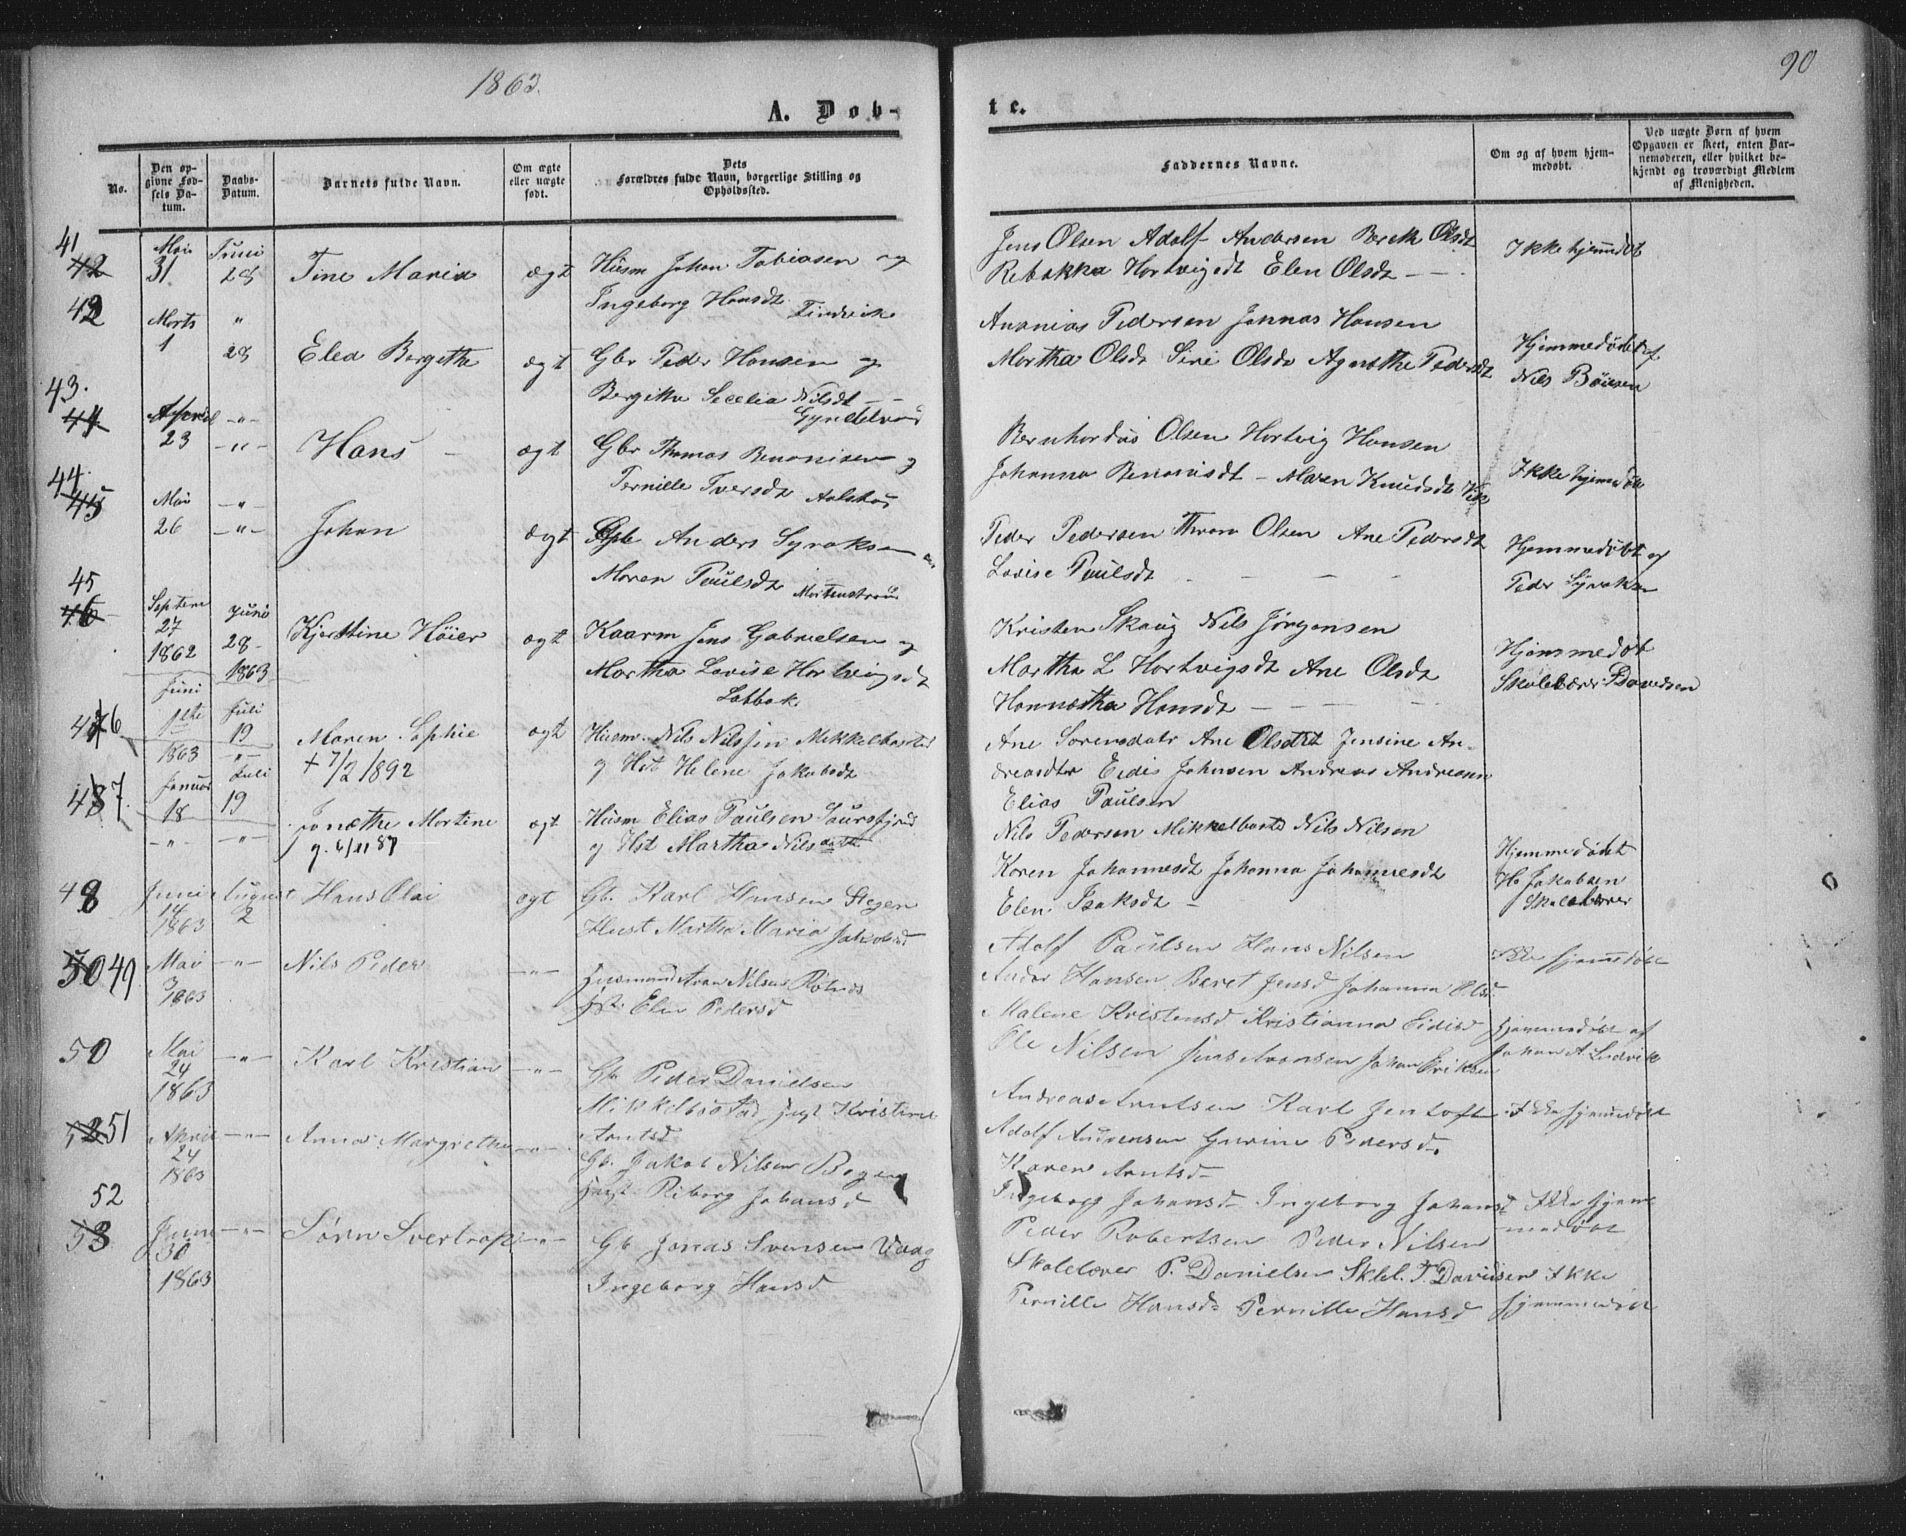 1863.
90
A. Døb-
te.
No.
Den opgivne Fødsels Datum.
Daabs-Datum.
Barnets fulde Navn.
Om ægte eller uægte født.
Dets Forældres fulde Navn, borgerlige Stilling og Opholdssted.
Faddernes Navne.
Om og af hvem hjemmedøbt.
Ved uægte Børn af hvem Opgaven er skeet, enten Barnemoderen, eller hvilket bekjendt og troværdigt Medlem af Menigheden.
41
42 Mai 31 Juni 28 Tine Maria ægt Husm Johan Tobiasen og
Ingeborg Hansdt
Jens Olsen Adolf Andersen Bereth Olsdt
Rebakka Hartvigsdt Elen Olsdt
Ikke hjemdøbt
42 Marts 1 " 28 Elea Bergitha ægt Gbr Peder Hansen og
Bergitha Secelia Nilsdt
Ananias Pedersen Jonnas Hansen
Martha Olsdt Sirie Olsdt Agnethe Pedersdt
Hjemmedøbt af
Nils Böiesen
43.
44 April 23 -"- -"- Hans ægt Gbr Thomas Benonisen og
Pernille Iversdt
Bernhardus Olsen Hartvig Hansen
Johanna Benonisdt - Maren Knudsdt
Ikke hjemdøbt
44.
45 Mai 26 -"- -"- Johan ægt Anders Syraksen
Maren Paulsdt
Peder Pedersen Olsen Ane Pedersdt
Lovise Paulsdt
Hjemmedøbt af
Peder Syraksen
45
46 Septem 27 1862 Juni 28 - 1863 Kjerstine Höier ægt Kaarm Jens Gabrielsen og
Martha Lovise Hartvigsdt
Labbok
Kristen Skaug Nils Jörgensen
Martha L Hartvigsdt Ane Olsdt
Hannætha Hansdt
Hjemmedøbt
Skolelærer Davidsen
46 Juni 1ste 1863 Juli 19 -"- Maren Sophie ægt Husm. Nils Nilssen Mikkelbostad
+ 7/2 1892
og Hst Helene Jakobsdt
Ane Sorensdatr Ane Olsdtr Jensine An-
dreasdtr Eidis Johnsen Andreas Andreassen
Elias Paulsen
47. Januar 18 -"- Juli 19 -"- Jonæthe Martine ægt Husm Elias Paulsen
g. 6/11 87
og Hst Martha Nilsdatr
Nils Pedersen Mikkelbostd Nils Nilsen
Karen Johannesdt Johanna Johannesdt
Elen Isaksdt -
Hjemmedøbt
H. Jakobsen
Skolelærer
48 Juni 14 1863 August 2 Hans Olai ægt Gb. Karl Hansen Stegen
Hust Martha Maria Jakobsd
Adolf Paulsen Hans Nilsen
Ander Hansen Beret Jensd Johanna Olsd
Ikke hjemmedøbt
50 49 Mai 3 1863 -"- Nils Peder -"- Husmand Aron Nilsen
Hst. Elen Pedersd
Malene Kristensd Kristianna Eidisd
Ole Nilsen Jens Aronsen Johan Eriksen
hjemmedøbt af
Johan A. Ludvik
50 Mai 24 1863 -"- Karl Kristian -"- Gb. Peder Danielsen
Mikkelbostad Hust Kristine
Arntsd
Andreas Arntsen Karl Jentoft
Adolf Andreasen Gurine Pedersd.
Karen Arntsd
Ikke hjemmedøbt
52 51 April 24 1863 -"- Anna Margrethe -"- Gb. Jakob Nilsen Bogen
Hust Riborg Johansd
Ingeborg Johansd Ingeborg Johansd
Peder Robertsen Peder Nilsen
Ikke hjem-
medøbt
52
53 Juni 30 1863 -"- Sørn Svertroft -"- Gb Jonas Svensen Vaag
Ingeborg Hansd
Skolelærer P. Danielsen Sklel. P Davidsen
Pernille Hansd Pernille Hansd
Ikke
hjemmedøbt